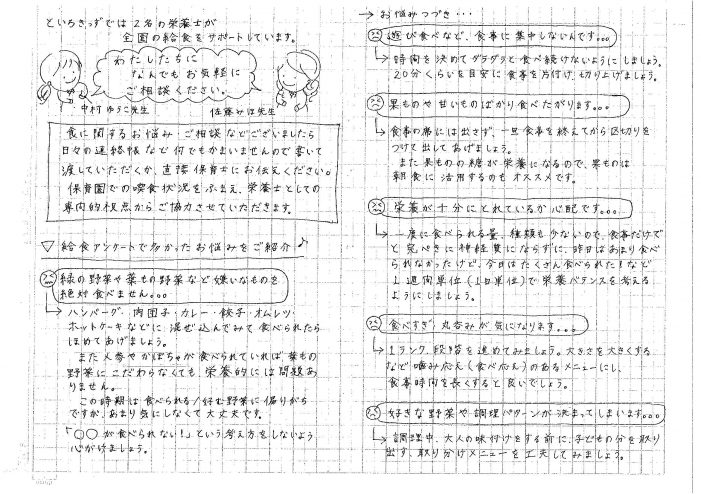 といろきっずでは2名の栄養士が
全園の給食をサポートしています。
わたしたちに
なんでもお気軽に
ご相談ください。
中村ゆうこ先生
佐藤みほ先生
食に関するお悩み・ご相談などございましたら
日々の連絡帳など何でもかまいませんので書いて
渡していただくか、直接保育士にお伝えください。
保育園での喫食状況をふまえ、栄養士としての
専門的視点からご協力させていただきます。
▽給食アンケートで多かったお悩みをご紹介♪
緑の野菜や葉もの野菜など嫌いなものを
絶対食べません。。。
↳ ハンバーグ・肉団子・カレー・餃子・オムレツ・
ホットケーキなどに混ぜ込んでみて食べられたら
ほめてあげましょう。
また人参やかぼちゃが食べられていれば葉もの
野菜にこだわらなくても、栄養的には問題あ
りません。
この時期は食べられる/好む野菜に偏りがち
ですが、あまり気にしなくて大丈夫です。
「○○が食べられない!」という考え方をしないよう
心がけましょう。
→ お悩みつづき・・・
遊び食べなど、食事に集中しないんです。。。
↳ 時間を決めてダラダラと食べ続けないようにしましょう。
20分くらいを目安に食事を片付け、切り上げましょう。
果ものや甘いものばかり食べたがります。。。
↳ 食事の席には出さず、一旦食事を終えてから区切りを
つけて出してあげましょう。
また果ものの糖が栄養になるので、果ものは
朝食に活用するのもオススメです。
栄養が十分にとれているか心配です。。。
↳ 一度に食べられる量、種類も少ないので、食事だけで
と完ぺきに神経質にならずに、昨日はあまり食べ
られなかったけど、今日はたくさん食べられた!など
1週間単位(1日単位)で栄養バランスを考える
ようにしましょう。
食べすぎ・丸呑みが気になります。。。
↳ 1ランク、段階を進めてみましょう。大きさを大きくする
など噛み応え(食べ応え)のあるメニューにし、
食事時間を長くすると良いでしょう。
好きな野菜や調理パターンが決まってしまいます。。。
↳ 調理中、大人の味付けをする前に、子どもの分を取り
出す、取り分けメニューを工夫してみましょう。